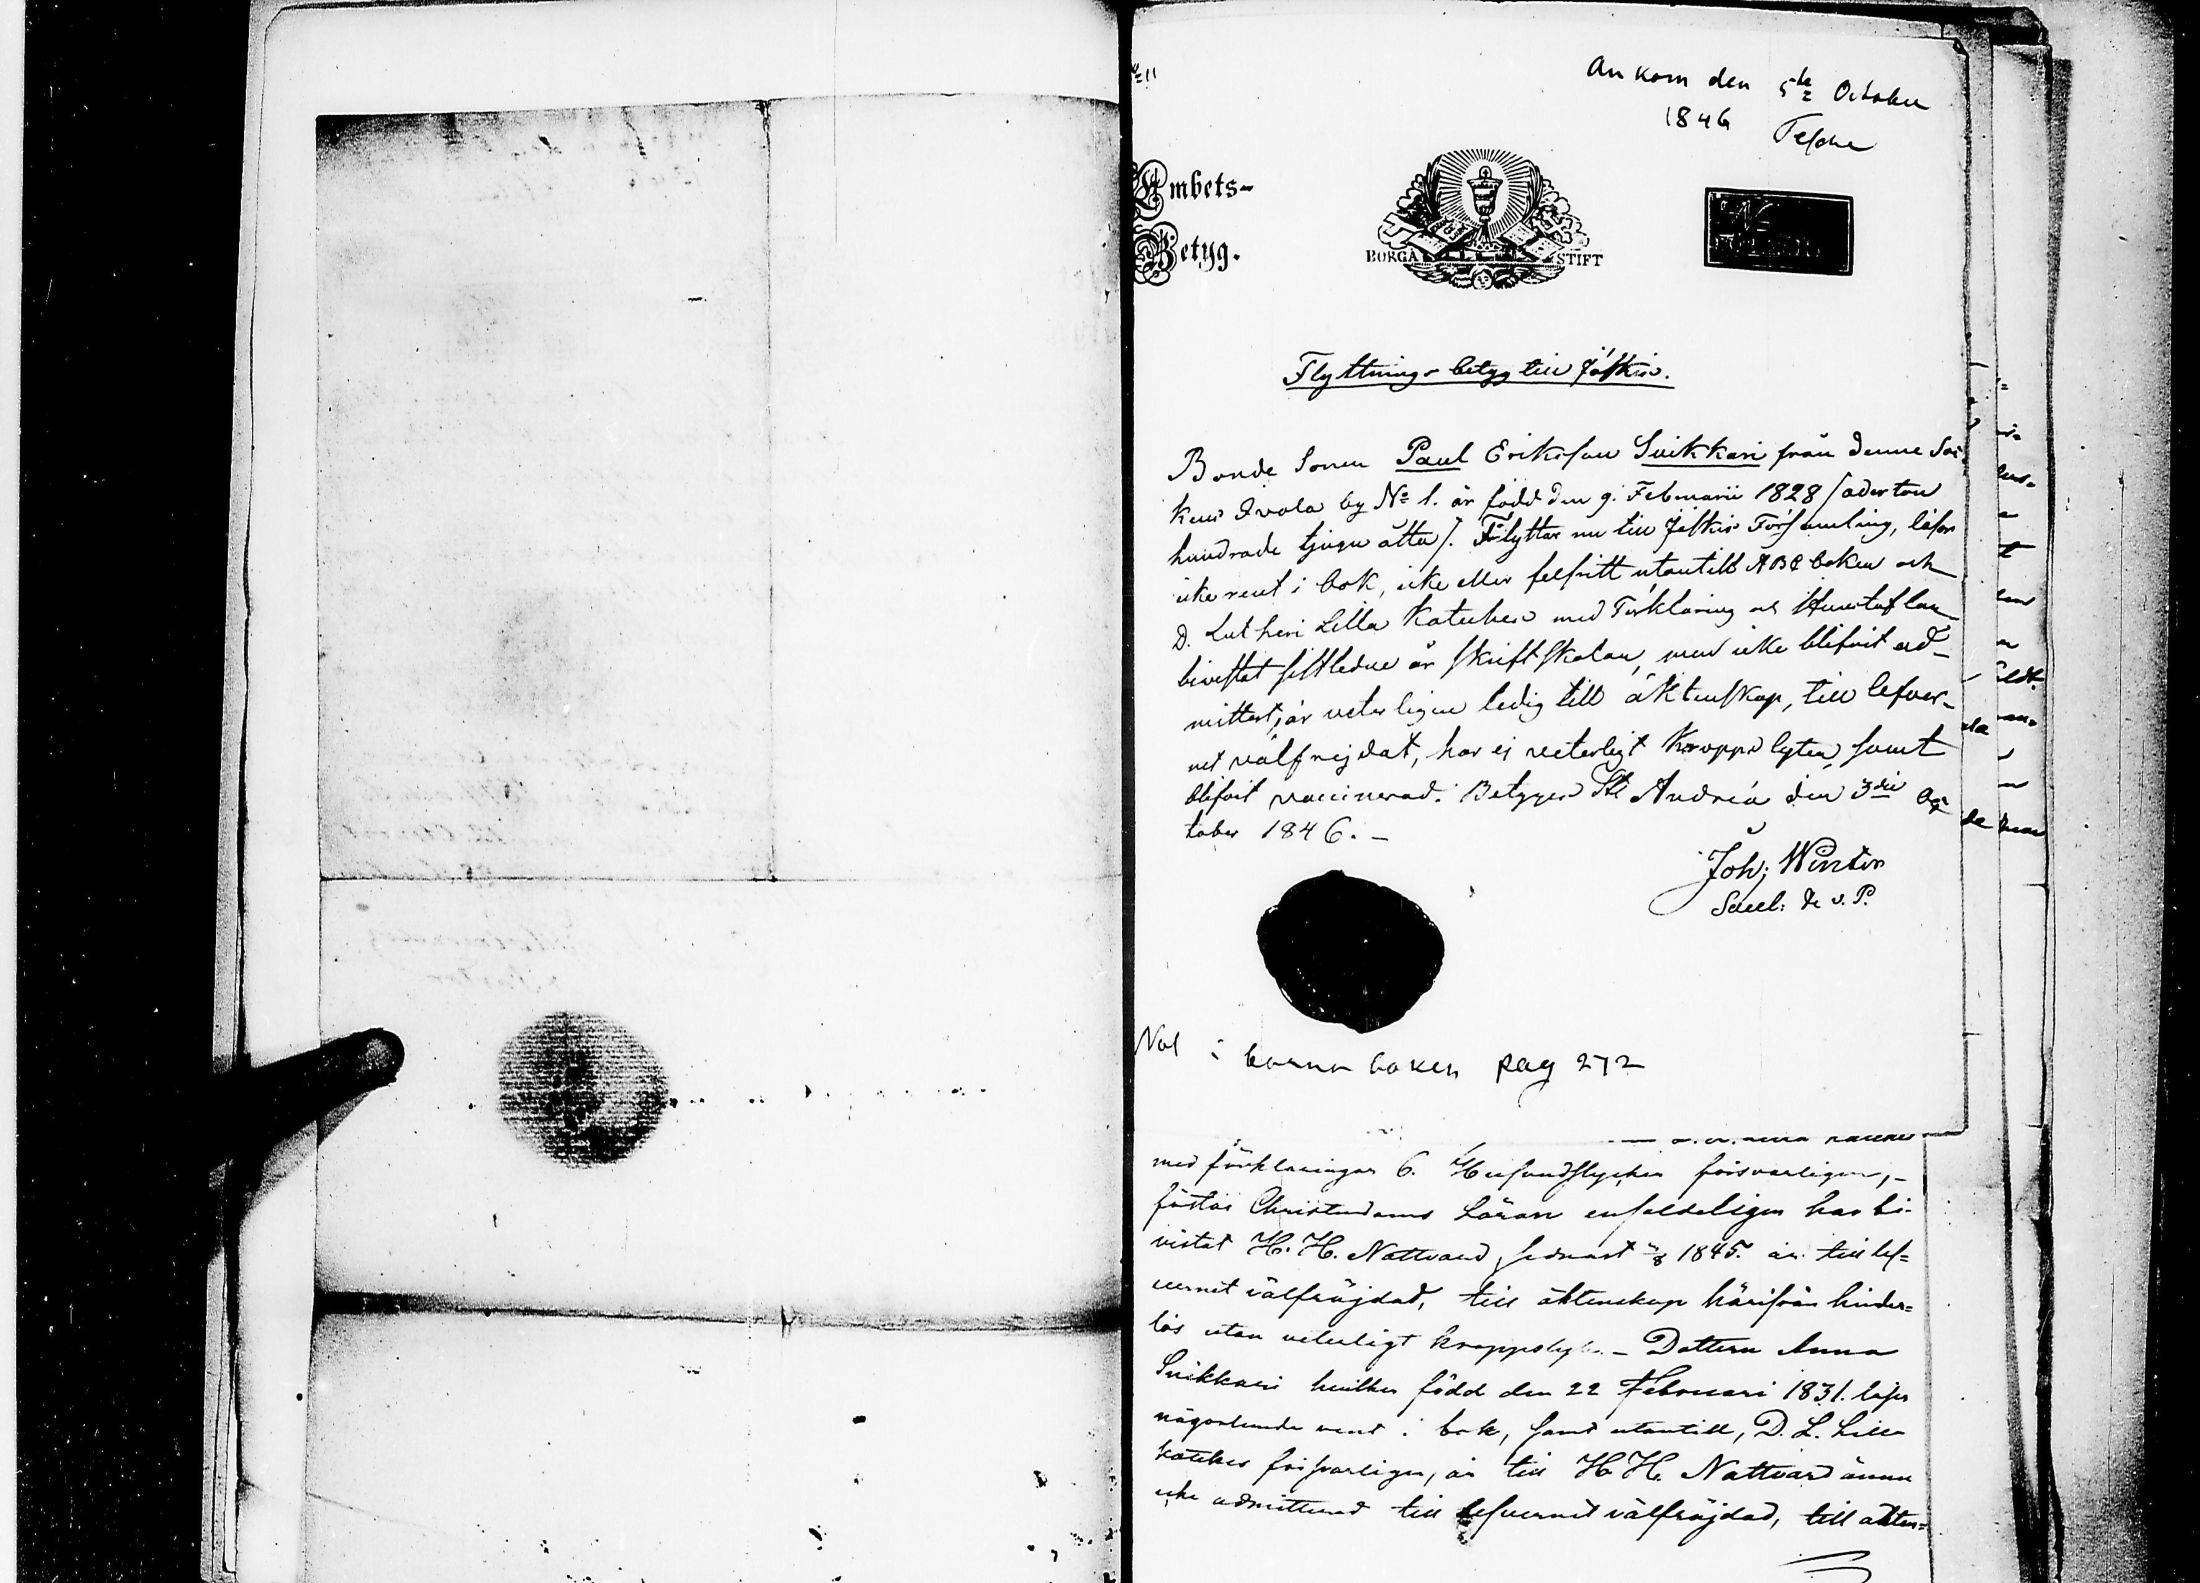 Ankom den 5te October
1846
Embets-
Betyg.
BORGÅ STIFT
Flyttnings betyg till Jäskis.
Bonde Sonen Paul Eriksson Suikkari från denne Soc-
kens Ivola by No 1. är född den 9. Februarii 1828 /aderton
hundrade tjugu åtta/. Flyttar nu till Jäskis Församling, läser
icke rent i bok, icke eller felfritt utantill ABC boken och
D. Lutheri Lilla Kateches med Förklaring och Hustaflan
bivistat sistledne år Skriftskolan, men icke blifvit ad-
mittert, är veterligen ledig till äktenskap, till lefver-
net välfrejdat, har ej veterligt kropps lyten, samt
blifvit vaccinerad. Betyger St Andreæ den 3die Oc-
tober 1846. -
Joh; Winter
v. P.
Not i barna boken pag 272
med förklaringar 6. Hufvudstycken försvarligen, -
förstår Christendoms Läran enfaldeligen har bi-
vistat H. H. Nattvard, sednast 1845. är till lef=
vernet välfräjdad, till äktenskap härifrån hinder=
lös utan veterligt kroppslyte. - Dottern Anna
Suikkari hvilken född den 22 Februari 1831. läser
någorlunda rent i bok, samt utantill, D. L. Lilla
katekes försvarligen, är till H. H. Nattvard ännu
icke admitterad till lefvernet välfräjdad, till äkten=